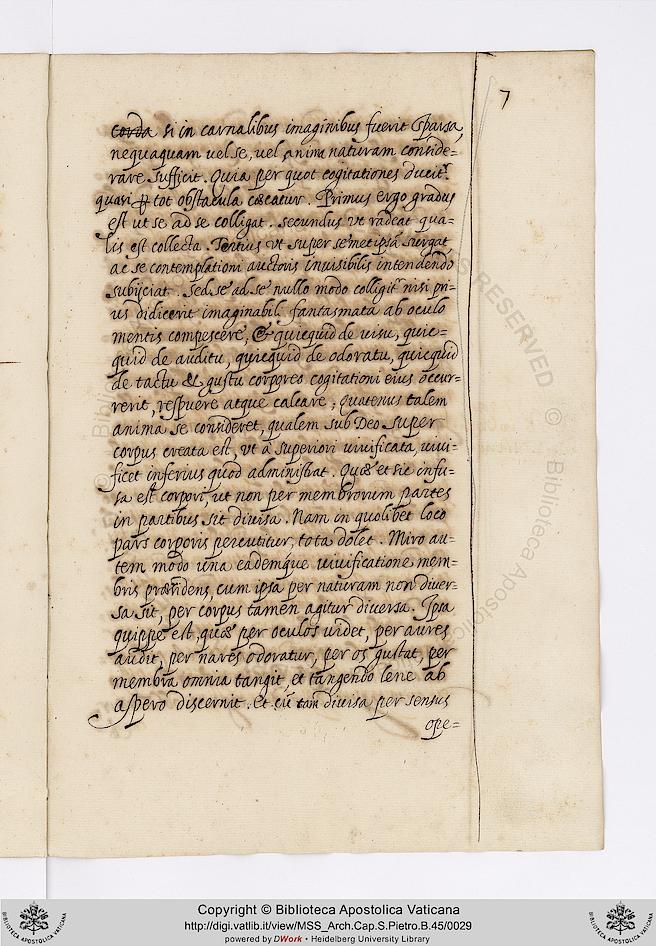 7
corda si in carnalibus imaginibus fuerit sparsa,
nequaquam uel se, uel animę naturam conside=
rare sufficit. Quia per quot cogitationes ducitr
quasi ꝑ tot obstacula cœcatur. Primus ergo gradus
est ut se ad se colligat. secundus ut videat qua=
lis est collecta. Tertius ut super semetipsā surgat
ac se contemplationi auctoris inuisibilis intendendo
subijciat. Sed se ad se nullo modo colligit nisi pri=
us didicerit imaginabil. fantasmata ab oculo
mentis compescere, & quicquid de uisu, quic=
quid de auditu, quicquid de odoratu, quicquid
de tactu & gustu corporeo cogitationi eius occur=
rerit, respuere atque calcare; quatenus talem
anima se consideret, qualem sub Deo super
corpus creata est, ut à superiori uiuificata, uiui=
ficet inferius quod administrat. Quæ et sic infu=
sa est corpori, ut non per membrorum partes
in partibus sit diuisa. Nam in quolibet loco
pars corporis percutitur, tota dolet. Miro au=
tem modo una eademque uiuificatione mem=
bris præsidens, cum ipsa per naturam non diuer=
sa sit, per corpus tamen agitur diuersa. Ipsa
quippe est, quæ per oculos uidet, per aures
audit, per nares odoratur, per os gustat, per
membra omnia tangit, et tangendo lene ab
aspero discernit. Et cū tam diuisa per sensus
ope=
RESERVED
© Biblioteca Apostolica
Copyright © Biblioteca Apostolica Vaticana
http://digi.vatlib.it/view/MSS_Arch.Cap.S.Pietro.B.45/0029
powered by DWork • Heidelberg University Library